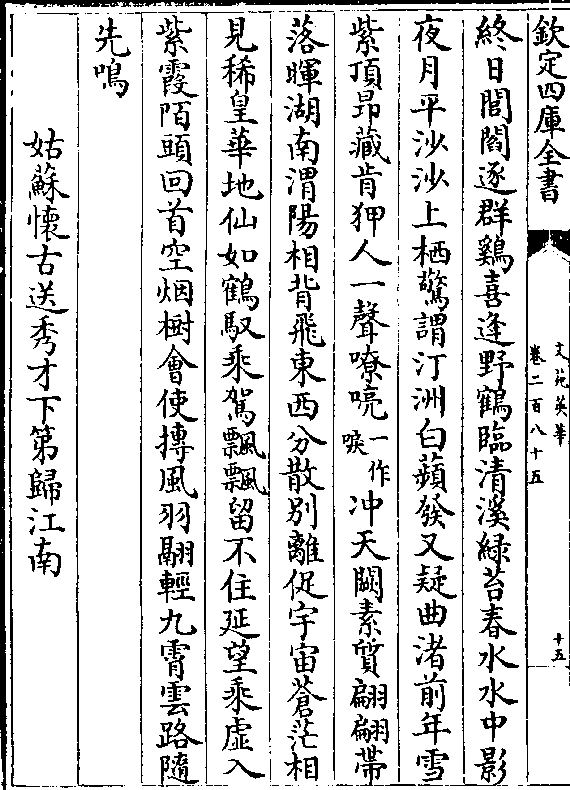 欽定四庫全書
文苑英華
卷二百八十五
十五
終日閶閻逐群鷄喜逢野鶴臨清溪緑苔春水水中影
夜月平沙沙上栖驚謂汀洲白蘋發又疑曲渚前年雪
紫頂昂藏肯狎人一聲嘹喨一作唳冲天闕素質翩翩帶
落暉湖南渭陽相背飛東西分散别離促宇宙蒼茫相
見稀皇華地仙如鶴馭乘駕飄飄留不住延望乘虚入
紫霞陌頭回首空烟樹會使摶風羽翮輕九霄雲路隨
先鳴
姑蘇懷古送秀才下第歸江南